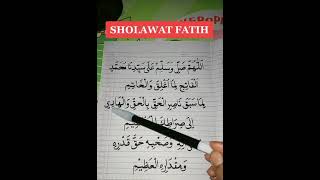 SHOLAWAT FATIH
اَللّٰهُمَّ صَلِّ وَسَلِّمْ عَلَى سَيِّدِنَا مُحَمَّدٍ
الْفَاتِحِ لِمَا أُغْلِقَ وَالْخَاتِمِ
لِمَا سَبَقَ نَاصِرِ الْحَقِّ بِالْحَقِّ وَالْهَادِيْ
إِلَى صِرَاطِكَ
وَصَحْبِهِ حَقَّ قَدْرِهِ
وَمِقْدَارِهِ الْعَظِيْمِ